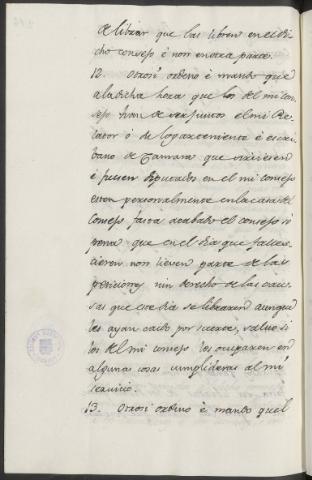 de librar que las libren en el di
cho consejo é non en otra parte.
12. Otrosi ordeno é mando que
a la dicha hora que los del mi con
sejo han de ser juntos el mi Re
lator ó
é escri
bano de Camara que
é fuesen diputados en el mi consejo
esten personalmente en la casa del
consejo fasta acabado el consejo só
pena que en el dia que fallec
ieren non lieven parte de las
peticiones nin derecho de las cau
sas que ese dia se libraren aunque
les ayan caido por suerte, salvo si
los del mi consejo los ocuparen en
algunas cosas cumplideras al mi
servicio.
13. Otrosi ordeno é mando quel